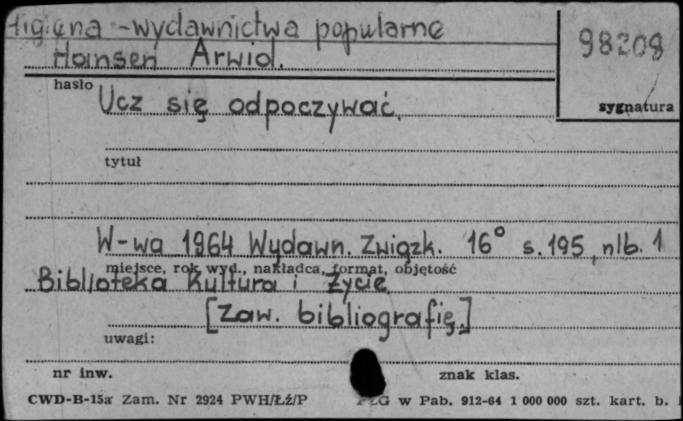 Higiena - wydawnictwa popularne
98208
Hansen Arwid.
hasło
Ucz się odpoczywać.
sygnatura
tytuł
W-wa 1964 Wydawn. Związk. 16° s. 195, nlb. 1
miejsce, rok wyd., nakładca, format, objętość
Biblioteka Kultura i Życie
[Zaw. bibliografię.]
uwagi:
nr inw.
znak klas.
CWD-B-15a Zam. Nr 2924 PWH/Łź/P
w Pab. 912-64 1 000 000 szt. kart. b.